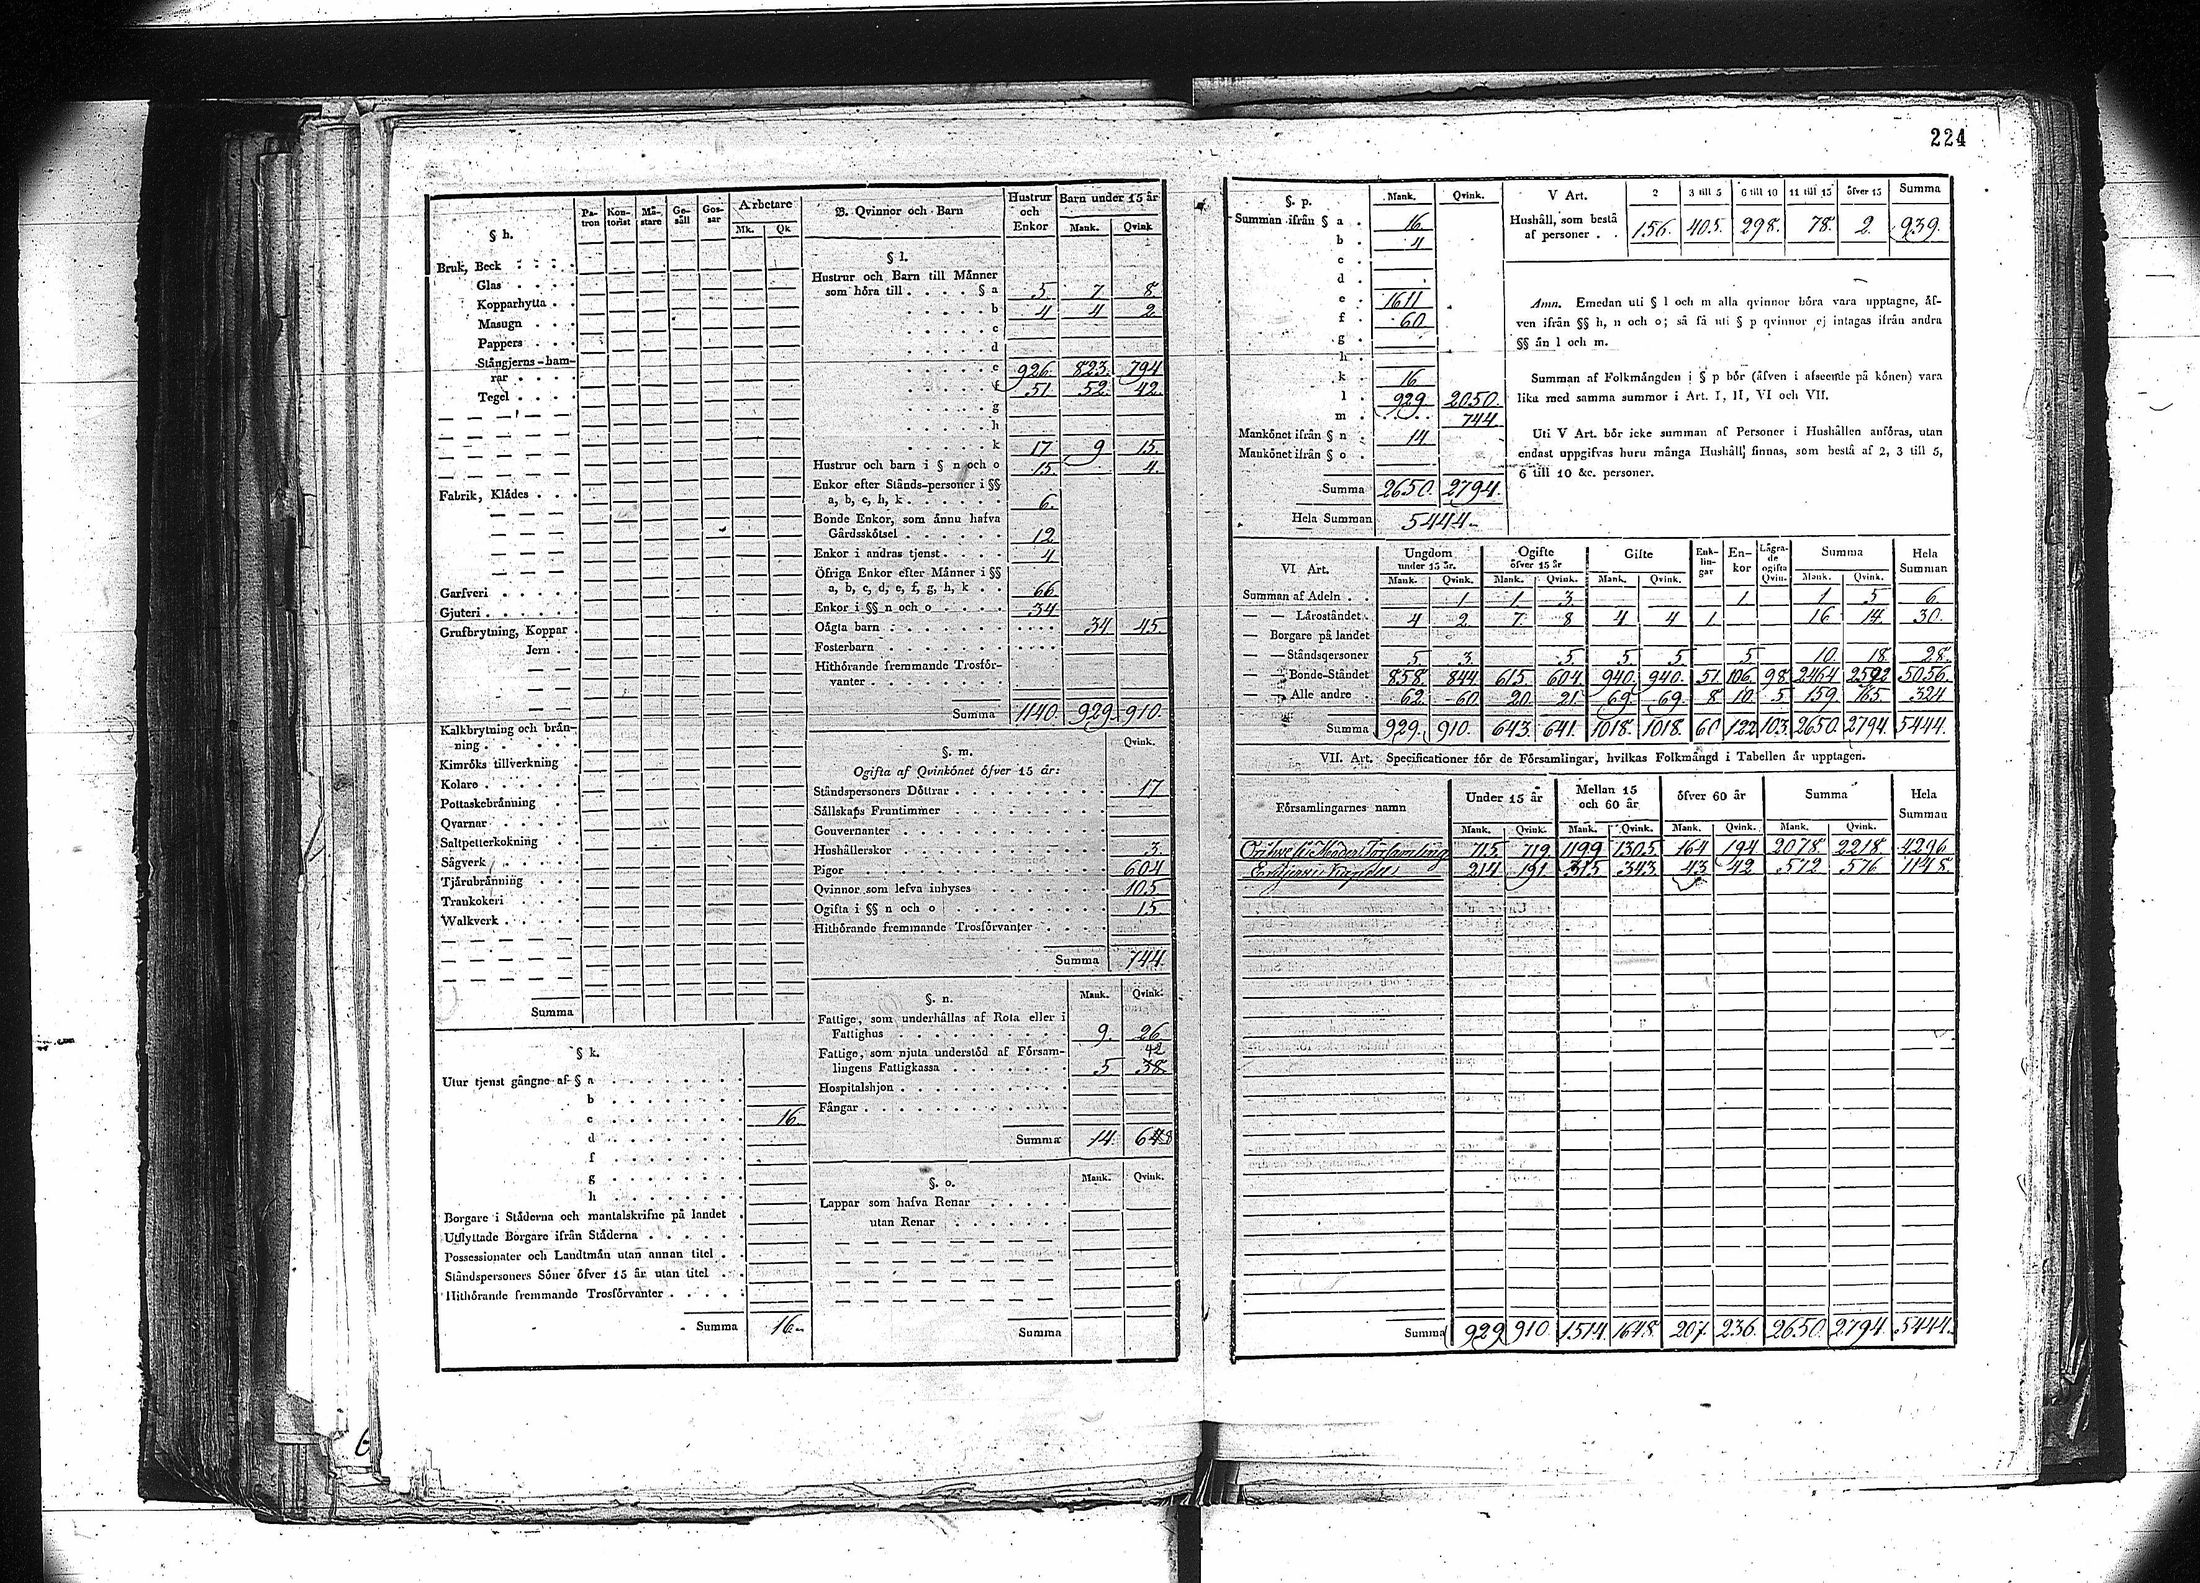 224
§ h.
Pa-tron Kon-torist Mä-stare Ge-säll Gos-sar Arbetare
Mk. Qk
Bruk, Beck
Glas
Kopparhytta
Masugn
Pappers
Stångjerns-ham-
rar
Tegel
Fabrik, Klädes
Garfveri
Gjuteri
Grufbrytning, Koppar
Jern
Kalkbrytning och brän-
ning
Kimröks tillverkning
Kolare
Pottaskebränning
Qvarnar
Saltpetterkokning
Sågverk
Tjärubränning
Trankokeri
Walkverk
Summa
§ k.
Utur tjenst gångne af § a
b
c 16.
d
f
g
h
Borgare i Städerna och mantalskrifne på landet
Utflyttade Borgare ifrån Städerna
Possessionater och Landtmän utan annan titel
Ståndspersoners Söner öfver 15 år utan titel
Hithörande fremmande Trosförvanter
Summa 16
B. Qvinnor och Barn
Hustrur och Enkor Barn under 15 år
Mank. Qvink
§ l.
Hustrur och Barn till Männer
som höra till § a 5. 7. 8.
b 4 4 2.
c
d
e 926. 823. 794
f 51. 52. 42.
g
h
k 17 9 15.
Hustrur och barn i § n och o 15. 4.
Enkor efter Stånds-personer i §§
a, b, c, h, k 6.
Bonde Enkor, som ännu hafva
Gårdsskötsel 12
Enkor i andras tjenst 4
Öfriga Enkor efter Männer i §§
a, b, c, d, e, f, g, h, k 66
Enkor i §§ n och o 34
Oägta barn 34 45.
Fosterbarn
Hithörande fremmande Trosför-
vanter
Summa 1140. 929. 910.
§. m.
Qvink.
Ogifta af Qvinkönet öfver 15 år:
Ståndspersoners Döttrar 17
Sällskaps Fruntimmer
Gouvernanter
Hushällerskor 3.
Pigor 604
Qvinnor som lefva inhyses 105
Ogifta i §§ n och o 15.
Hithörande fremmande Trosförvanter
Summa 744.
§. n.
Mank. Qvink.
Fattige, som underhållas af Rota eller i
Fattighus 9. 26
Fattige, som njuta understöd af Försam- 42
lingens Fattigkassa 5 38.
Hospitalshjon
Fångar
Summa 14.
§. o.
Mank. Qvink.
Lappar som hafva Renar
utan Renar
Summa
§. p.
Mank. Qvink.
Summan ifrån § a 16
b 4
c
d
e 1611
f 60
g
h
k 16
l 929 2050.
m 744
Mankönet ifrån § n 14
Mankönet ifrån § o
Summa 2650. 2794.
Hela Summan 5444.
V Art. 2 3 till 5 6 till 10 11 till 15 öfver 15 Summa
Hushåll, som bestå
af personer 156. 405. 298. 78. 2. 939.
Anm. Emedan uti § l och m alla qvinnor böra vara upptagne, äf-
ven ifrån §§ h, n och o; så få uti § p qvinnor ej intagas ifrån andra
§§ än l och m.
Summan af Folkmängden i § p bör (äfven i afseende på könen) vara
lika med samma summor i Art. I, II, VI och VII.
Uti V Art. bör icke summan af Personer i Hushållen anföras, utan
endast uppgifvas huru många Hushåll finnas, som bestå af 2, 3 till 5,
6 till 10 &c. personer.
VI Art.
Ungdom under 15 år. Ogifte öfver 15 år Gifte Enk-lin-gar En-kor Lägra-de ogifta Qvin. Summa Hela Summan
Mank. Qvink. Mank. Qvink. Mank. Qvink. Mank. Qvink.
Summan af Adeln 1 1. 3. 1. 1 5 6.
— Läroståndet 4 2. 7. 8 4 4 1. 16 14. 30.
— Borgare på landet
— Ståndspersoner 5. 3. 5. 5. 5. 5. 10. 18. 28.
— Bonde-Ståndet 858. 844 615. 604. 940. 940. 51. 106. 98. 2464 2592 5056.
— Alle andre 62. 60 20. 21. 69. 69. 8 10. 5. 159. 165. 324
Summa 929. 910. 643. 641. 1018. 1018. 60 122 103. 2650. 2794. 5444.
VII. Art. Specificationer för de Församlingar, hvilkas Folkmängd i Tabellen är upptagen.
Församlingarnes namn Under 15 år Mellan 15 och 60 år öfver 60 år Summa Hela Summan
Mank. Qvink. Mank. Qvink. Mank. Qvink. Mank. Qvink.
Moder Församling 715. 719. 1199 1305. 164 194 2078. 2218. 4296.
214 191 315 343. 43 42 572 576 1148.
Summa 929 910. 1514. 1648. 207. 236. 2650. 2794. 5444.